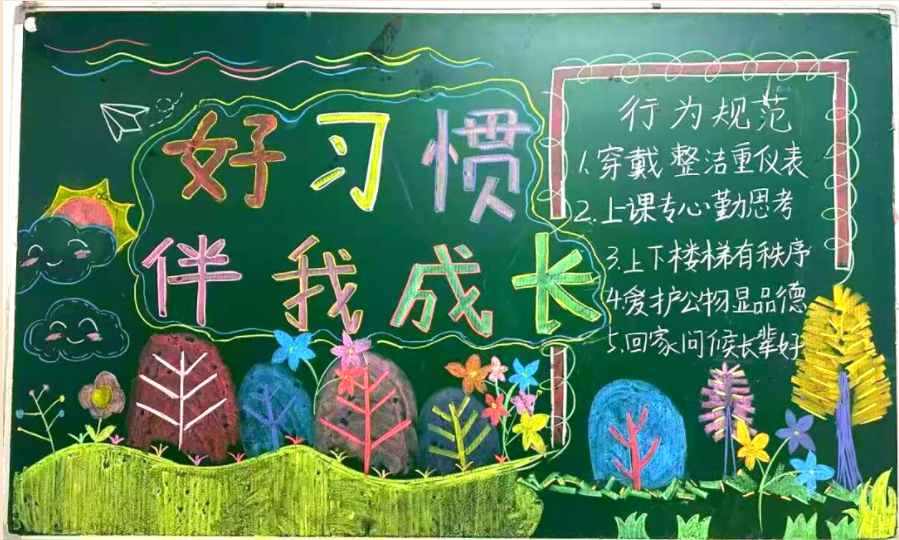 好习惯
伴我成长
行为规范
1.穿戴整洁重仪表
2.上课专心勤思考
3.上下楼梯有秩序
4.爱护公物显品德
5.回家问候长辈好